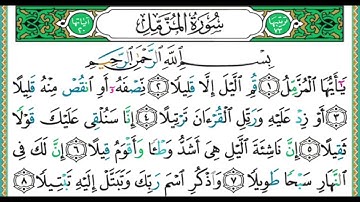 سُورَةُ الْمُزَّمِّلِ
بِسْمِ اللَّهِ الرَّحْمَٰنِ الرَّحِيمِ
يَٰٓأَيُّهَا ٱلْمُزَّمِّلُ ﴿١﴾ قُمِ ٱلَّيْلَ إِلَّا قَلِيلًا ﴿٢﴾ نِّصْفَهُۥٓ أَوِ ٱنقُصْ مِنْهُ قَلِيلًا
﴿٣﴾ أَوْ زِدْ عَلَيْهِ وَرَتِّلِ ٱلْقُرْءَانَ تَرْتِيلًا ﴿٤﴾ إِنَّا سَنُلْقِى عَلَيْكَ قَوْلًا
ثَقِيلًا ﴿٥﴾ إِنَّ نَاشِئَةَ ٱلَّيْلِ هِىَ أَشَدُّ وَطْـًٔا وَأَقْوَمُ قِيلًا ﴿٦﴾ إِنَّ لَكَ فِى
ٱلنَّهَارِ سَبْحًا طَوِيلًا ﴿٧﴾ وَٱذْكُرِ ٱسْمَ رَبِّكَ وَتَبَتَّلْ إِلَيْهِ تَبْتِيلًا ﴿٨﴾